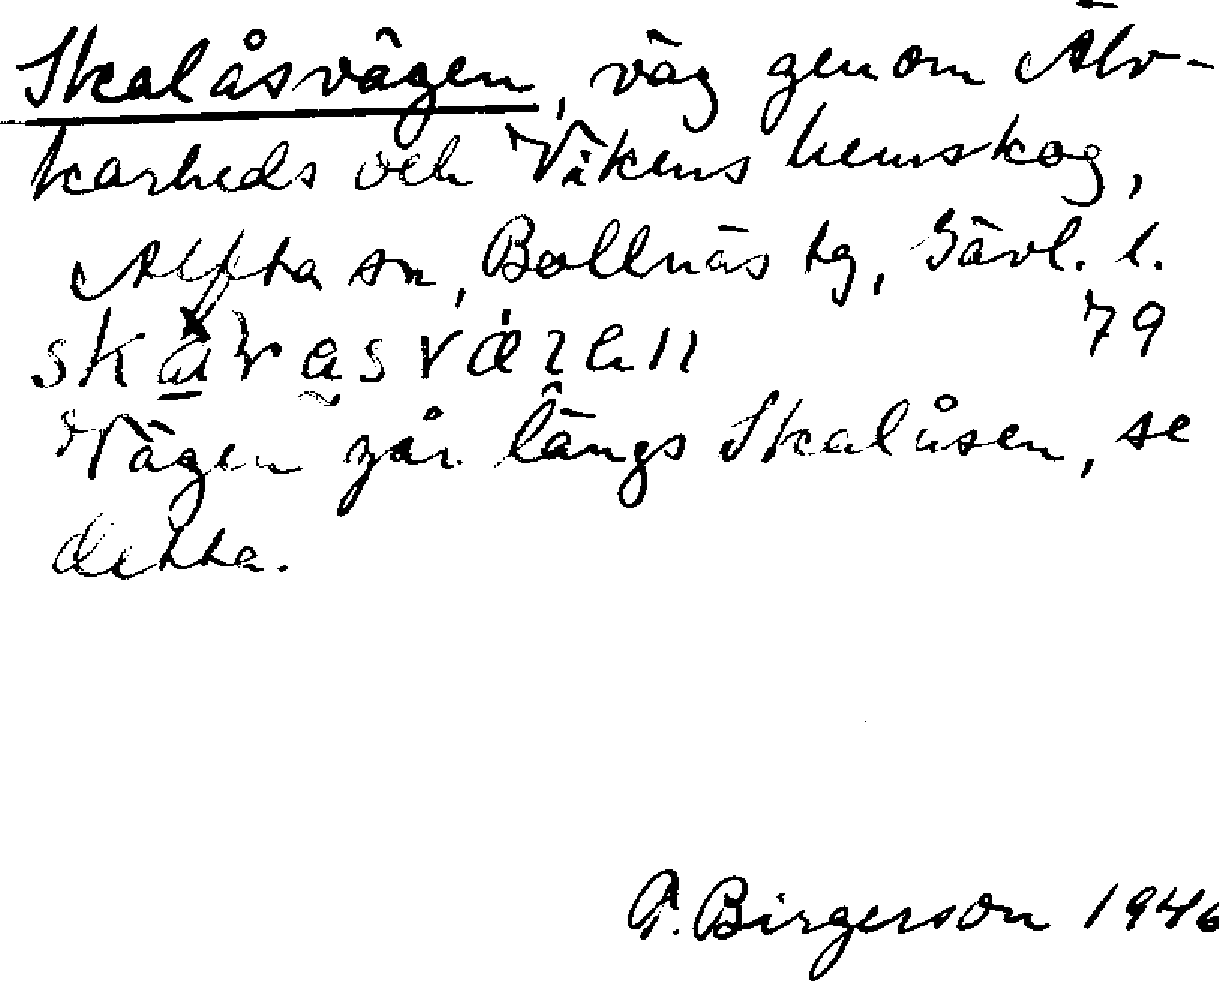 Skalåsvägen, väg genom Älv-
karheds och Vikens hemskog,
Alfta sn, Bollnäs tg, Gävl. l.
79
Vägen går längs Skalåsen, se
detta.
Birgerson 1946